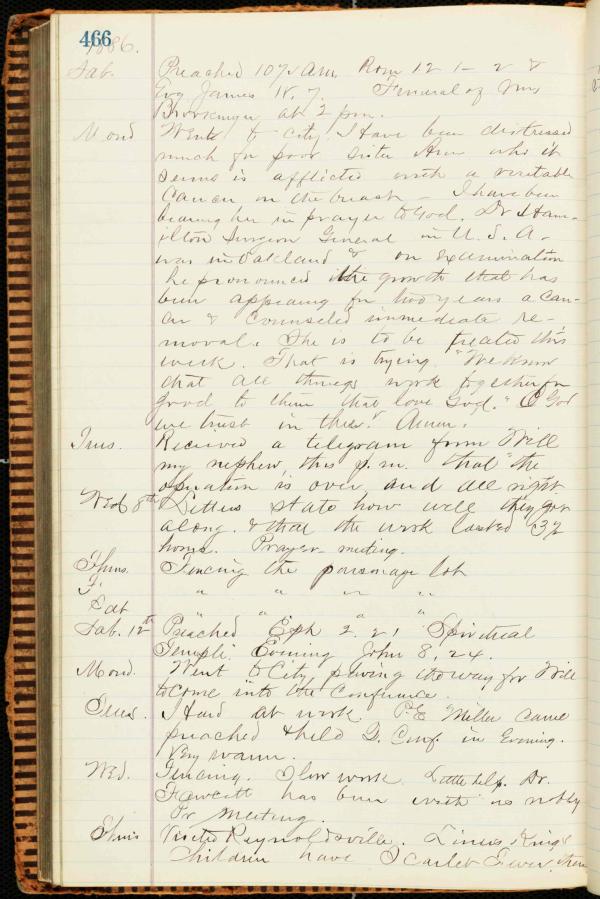 466
1886.
Sab. Preached 10½ Am. Rom 12 1-2 &
Evg James IV. 7. Funeral of Mrs
at 2 pm.
Mond Went to city. I have been distressed
much for poor sister Ann who it
seems is afflicted with a veritable
Cancer on the breast - I have been
bearing her in prayer to God. Dr Ham-
ilton Surgeon General in U. S. A.
was in Oakland & on examination
he pronounced the growth that has
been appearing for two years a can-
cer & counseled immediate re-
moval. She is to be treated this
week. That is trying. "We know
that all things work together for
good to them that love God." O God
we trust in thee! Amen.
Tues. Received a telegram from Will
my nephew this p.m. that "the
operation is over and all right.
Wed 8th Letters state how well they got
along. & that the work lasted 3½
hours. Prayer-meeting.
Thurs. Fencing the parsonage lot
F. " " " "
Sat " " " "
Sab. 12th Preached Eph 2. 21 Spiritual
Temple. Evening John 8, 24.
Mond. Went to City paving the way for Will
to come into the Conference.
Tues. Hard at work. P.E. Miller came
preached & held Q. Conf. in Evening.
Very warm.
Wed. Fencing. Slow work. Little help. Dr.
Fawcett has been with us nobly
Pr Meeting.
Thurs Visited Reynoldsville. Linus King's
Children have Scarlet Fever, them